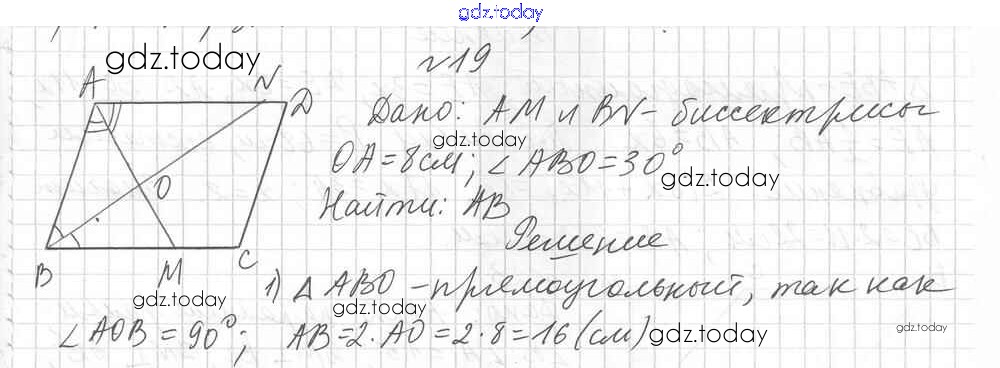 gdz.today
gdz.today
№19
A N D
Дано: AM и BN - биссектрисы
gdz.today
OA = 8 см; ∠ABO = 30°
gdz.today
O
Найти: AB
Решение
B M C
1) △ ABO - прямоугольный, так как
gdz.today gdz.today
∠AOB = 90°; AB = 2·AO = 2·8 = 16 (см)
gdz.today gdz.today